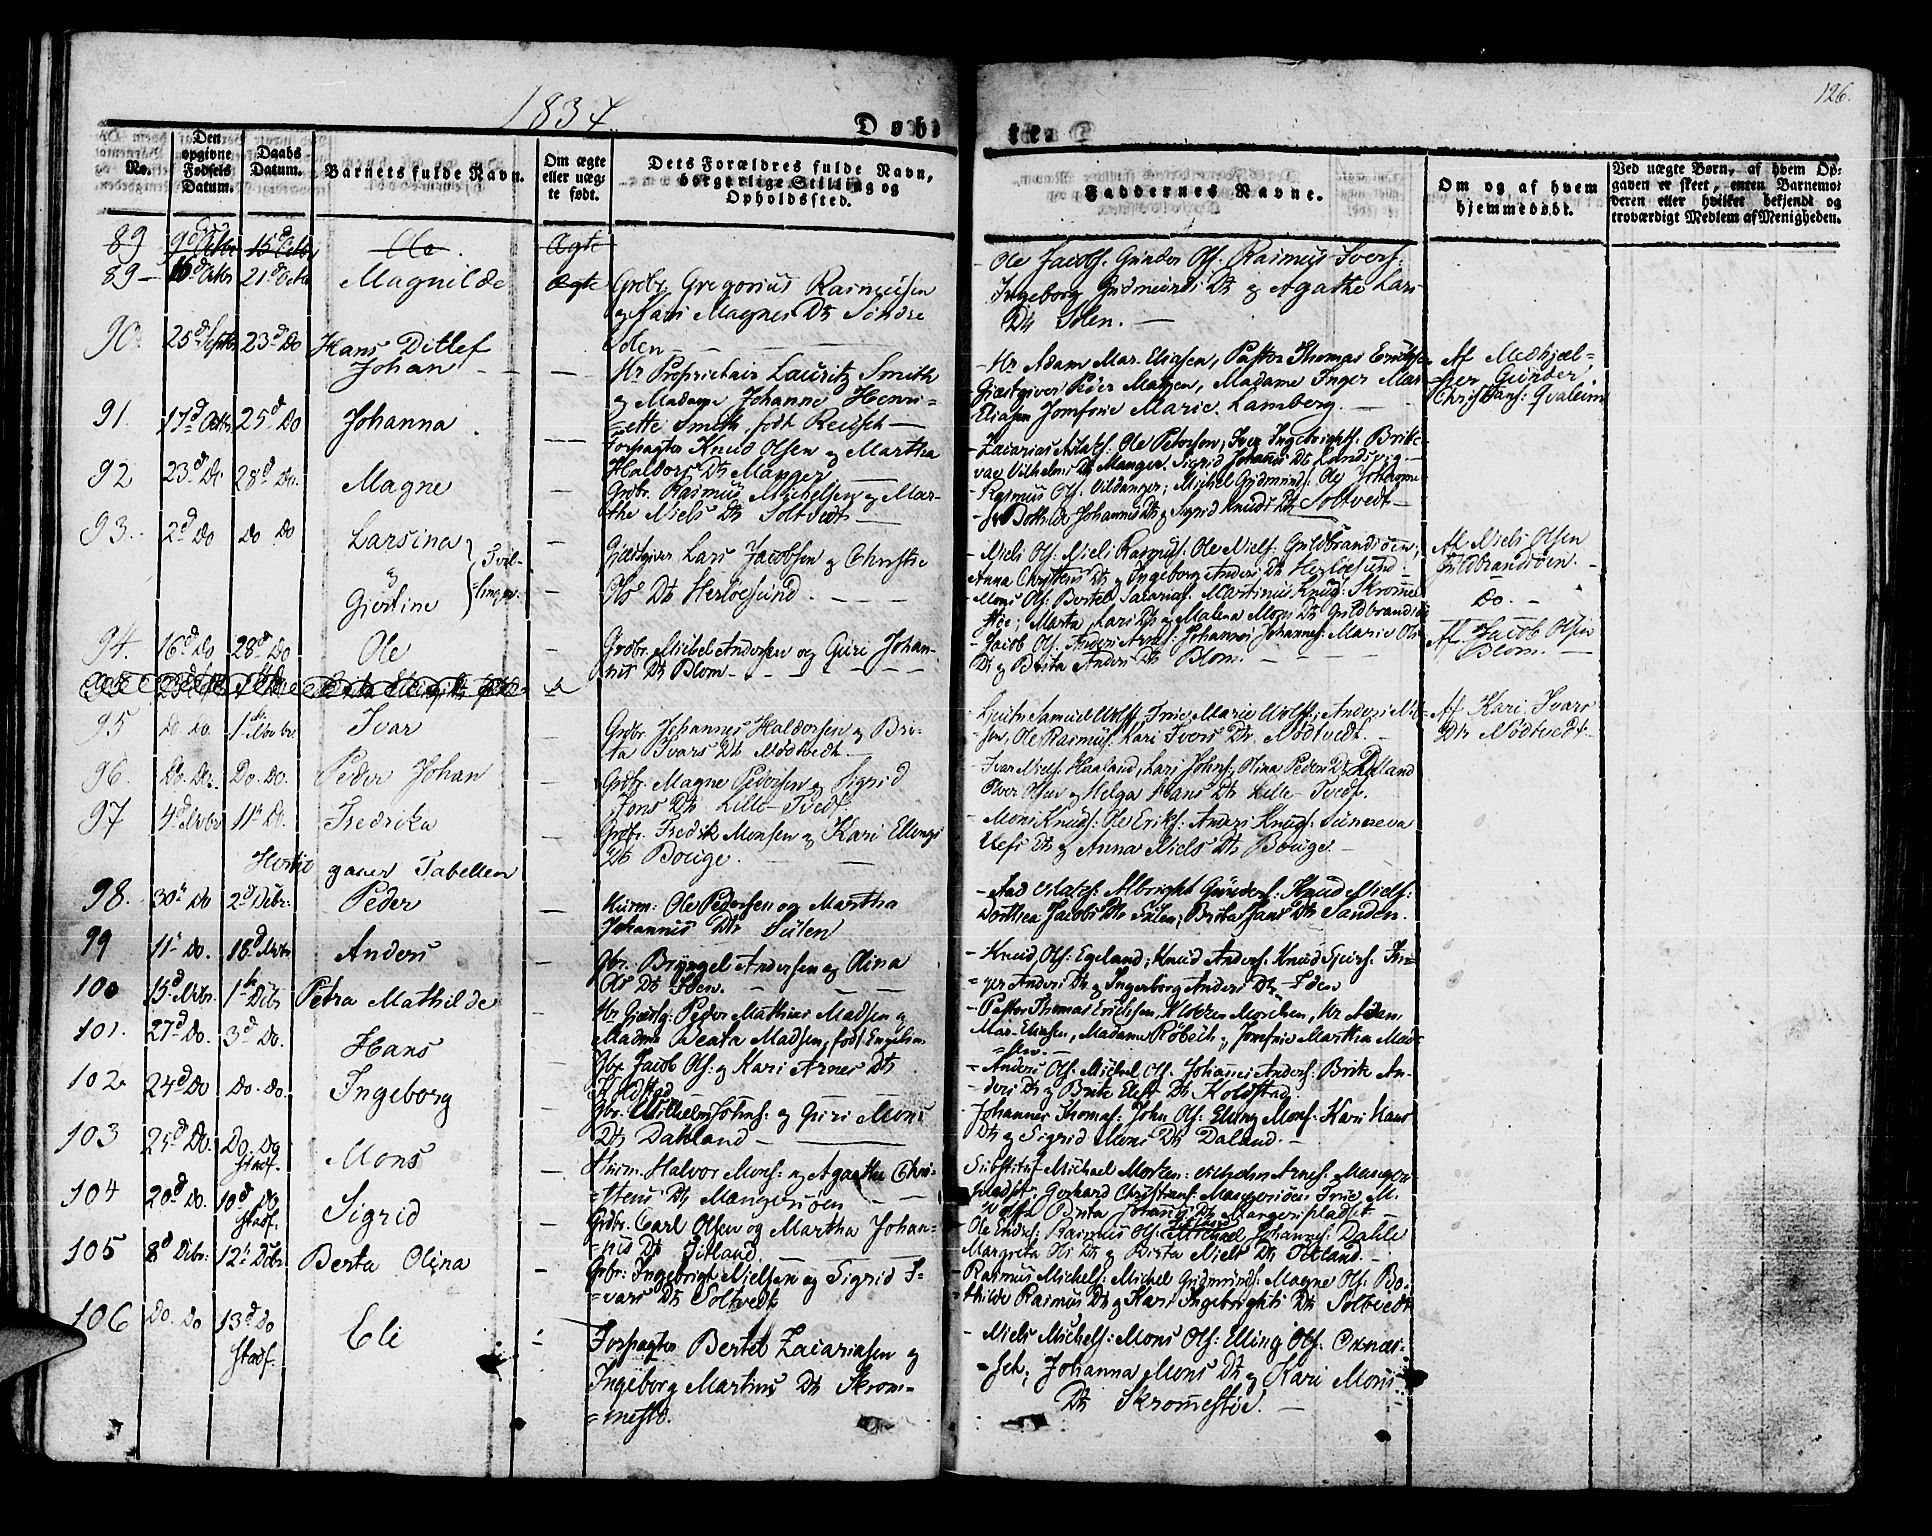 1837
Døbte
126.
No.
Den opgivne Fødsels Datum.
Daabs Datum.
Barnets fulde Navn.
Om ægte eller uægte født.
Dets Forældres fulde Navn, borgerlige Stilling og Opholdssted.
Faddernes Navne.
Om og af hvem hjemmedøbt.
Ved uægte Børn, af hvem Opgaven er skeet, enten Barnemoderen eller hvilket bekjendt og troværdigt Medlem af Menigheden.
89 Ole Ægte
89 – 21d Octb Magnilde Ægte Grdbr. Gregorius Rasmussen
og Kari Magnes Dtr Søndre
Iden
– Ole Jacobs. Gunder Ols. Rasmus Ivers.
Ingeborg Gudmunds Dtr og Agathe Lars
Dtr Iden. –
90. 25d Septbr 23d Do Hans Ditlef
Johan –
Hr Proprietair Lauritz Smith
og Madame Johanne Henri=
=ette Smith, født Reusch –
– Hr Adam Mar. Eliasen, Pastor Thomas Erichsen
Gjæstgiver Peder Matzen, Madame Inger Mar.
Eliasen Jomfrue Marie Lamberg. –
Af Medhjæl=
=per Gunder
Christians: Qvaleim
91. 17d Octbr 25d Do Johanna
Forpagter Knud Olsen og Martha
Haldors Dtr Manger –
– Zacarias Ole Petersen, Iver Ingebrights. Brite
Vilhelms Dtr Manger. Sigrid Johannis Dtr Landsvig –
92 23d Do 28d Do. Magne
Grdbr. Rasmus Michelsen og Mar-
the Niels Dtr Soltvedt –
– Rasmus Ols. Vildanger; Michel Gudmunds: Ole
Bothilde Johannis Dtr og Sigrid Knuds Dtr Soltvedt –
93. 2d Do Do Do Larsina
&
Gjertine
Tvil-
=linger
Gjæstgiver Lars Jacobsen og Christie
Ols Dtr Herløesund
– Niels Ols: Niels Rasmus: Ole Niels: Guldbrandsøen;
Anna Christens Dtr og Ingeborg Anders Dtr Herløesund –
Mons Ols: Bertel Zacarias: Martinus Knud: Skromme
støe; Marta Lars Dtr og Malena Mons Dtr Guldbrandsøe
Af Niels Olsen
Guldbrandsøen. –
Do. –
94. 16d Do 28d Do Ole
Grdbr. Michel Andersen og Guri Johan-
nis Dtr Blom –
– Jacob Ols. Anders Arnes: Johannes Johannes: Marie Ols
Dtr og Brita Anders Dtr Blom. –
Af Jacob Olsen
Blom. –
95 Do. Do. 1ste Novbr Ivar
Grdbr. Johannes Haldorsen og Bri-
ta Ivars Dtr Nødtvedt –
Samuel Wolff, Frue Marie Wolff; Anders Nil=
sen, Ole Rasmus: Kari Ivers Dtr Nødtvedt –
Af Kari Ivars
Dtr Nødtvedt –
96. Do. Do. Do. Do. Peder Johan
Grdbr. Magne Pedersen og Sigrid
Jons Dtr Lille-Tvedt
– Ivar Niels. Haaland, Lars Johns; Olina Peders Dtr Daland
Olsen og Helga Hans Dtr Lille-Tvedt.
97 4d Novbr 11te Do. Fredrika
Grdbr. Fredrik Monsen og Kari Ellings
Dtr Bouge.
– Mons Knuds: Ole Eriks: Anders Knuds: Sunneva
Dtr og Anna Niels Dtr Bouge –
Hertil gaaer Tabellen
98. 30te Do 2d Dcbr: Peder
Huusm: Ole Pedersen og Martha
Johannis Dtr Sulen
– Aad Matzs. Albright Gunders: Knud Niels:
Dorthea Jacobs Dtr Sulen; Brita Jans Dtr Sanden.
99 11te Do. 18d Novbr Anders
Gbr. Bryngel Andersen og Olina
Ols Dtr Iden.
– Knud Ols. Egeland; Knud Anders: Knud Sjurs. In=
=ger Anders Dtr og Ingeborg Anders Dtr Iden
100 15d Novbr. 1ste Dcbr Petra Mathilde
Hr Gjæstg: Peder Mathias Madsen og
Madme Beata Madsen, født Engelsen
– Pastor Thomas Erichsen, Klokker Monsen, Hr Adam
Mar. Eliasen, Madame Røbech, Jomfrue Martha Mad=
=sen. –
101. 27d Do. 3d Do. Hans
Gbr Jacob Ols: og Kari Arnes Dtr
Koldstad
– Anders Ols. Michel Ols. Johannes Anders: Brite An-
– ders Dtr og Brite Elefs Dtr Koldstad. –
102 24d Do Do. Do. Ingeborg
Gbr: Wilhelm Johns: og Guri Mons
Dtr Dahland –
– Johannes Thomas: John Ols: Elling Mons: Kari Hans
Dtr og Sigrid Mons Dtr Daland. –
103 25d Do. Do. Do
stadf.
Mons
Huusm. Halvor Mons: og Agathe Chri=
=stens Dtr Mangersøen
Substitut Michael Morten: Wilhelm Arnes: Manger
pladset; Gerhard Christians: Mangersøen Frue M.
Wolff Brita Johannis Dtr Mangerspladset –
104 20d Do. 10d Do
stadf.
Sigrid
Grdbr. Carl Olsen og Martha Johan=
=nis Dtr Titland. –
– Ole Rasmus Ols. Michael Johannes: Dahle
Margreta Ols Dtr og Brita Niels Dtr Titland. –
105 8d Dcbr: 12te Dcbr Berta Olina
Grbr: Ingebrigt Nielsen og Sigrid I=
=vars Dtr Soltvedt
– Rasmus Michels: Michel Gudmunds: Magne Ols: Bo-
thilde Rasmus Dtr og Kari Ingebrights Dtr Soltvedt
106 Do. Do 13d Do
stadf.
Eli
Forpagter Bertel Zacariasen og
Ingeborg Martins Dtr Skrom=
=mestø.
– Niels Michels: Mons Ols: Elling Ols.
Johanna Mons Dtr og Kari Mons
Dtr Skromestøe. –